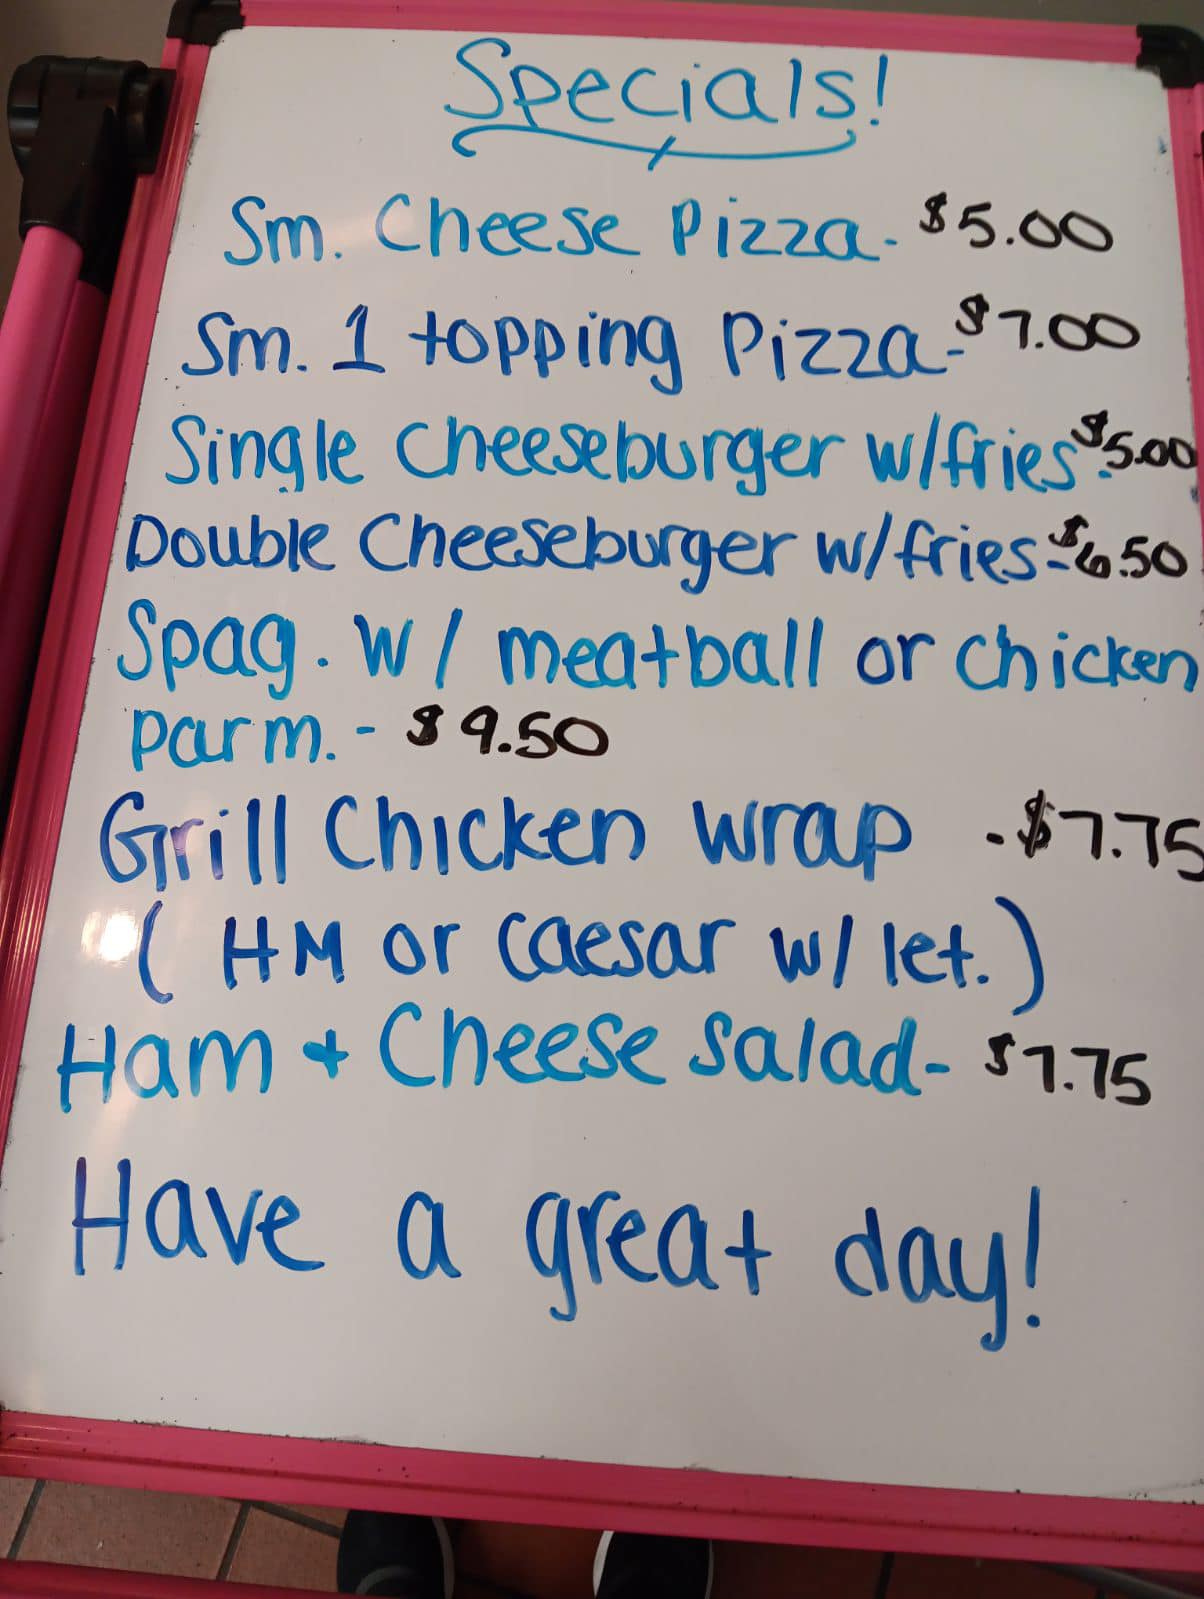 Specials!
Sm. Cheese Pizza - $5.00
Sm. 1 topping Pizza - $7.00
Single Cheeseburger w/fries - $5.00
Double Cheeseburger w/fries - $6.50
Spag. w/ meatball or chicken
parm. - $9.50
Grill Chicken wrap - $7.75
( HM or Caesar w/ let. )
Ham + Cheese Salad - $7.75
Have a great day!